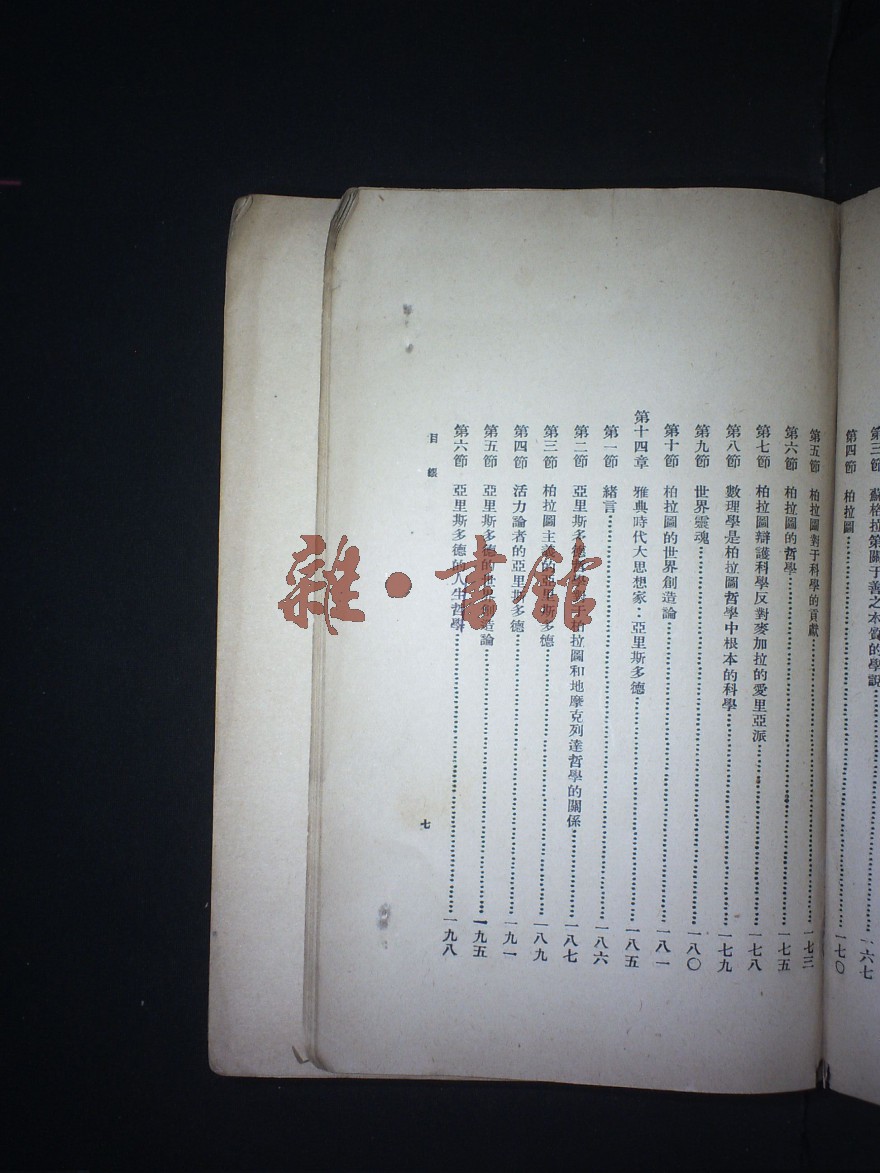 第三節　蘇格拉第關于善之本質的學說………一六七
第四節　柏拉圖………一七〇
第五節　柏拉圖對于科學的貢獻………一七三
第六節　柏拉圖的哲學………一七五
第七節　柏拉圖辯護科學反對麥加拉的愛里亞派………一七八
第八節　數理學是柏拉圖哲學中根本的科學………一七九
第九節　世界靈魂………一八〇
第十節　柏拉圖的世界創造論………一八一
第十四章　雅典時代大思想家·亞里斯多德………一八五
第一節　緒言………一八六
第二節　亞里斯多德哲學對于柏拉圖和地摩克列達哲學的關係………一八七
第三節　柏拉圖主義的亞里斯多德………一八九
第四節　活力論者的亞里斯多德………一九一
第五節　亞里斯多德的世界創造論………一九五
第六節　亞里斯多德的人生哲學………一九八
目錄
七
雜·書館